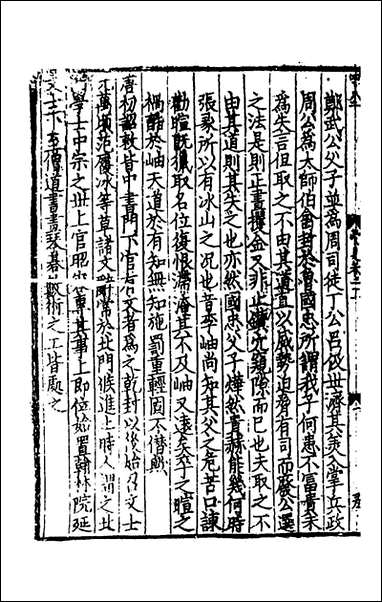 鄭武公父子並為周司徒丁公呂伋世濟其美入掌兵政
周公為太師伯禽封於魯國忠所謂我子何患不富貴未
為失言但取之不由其道直以威勢迫脅有司而廢公選
之法是則正晝攫金又非止鑽穴窺隙而已也夫取之不
由其道則其失之也亦然國忠父子燁然赫能幾何時
張彖所以有冰山之况也昔李岫尚知其父之危苦口諫
勸暄既獵取名位復恨滯淹其不及岫又遠矣卒之暄之
禍酷於岫天道於有知無知施罰重輕固不僭歟
唐初詔敕皆中書門下官有文者為之乾封以後始召文士
元萬頃范履冰等草諸文辭常於北門候進止時人謂之北
門學士中宗之世上官昭容專其事上即位始置翰林院延
文士下至僧道書畫琴碁數術之工皆處之